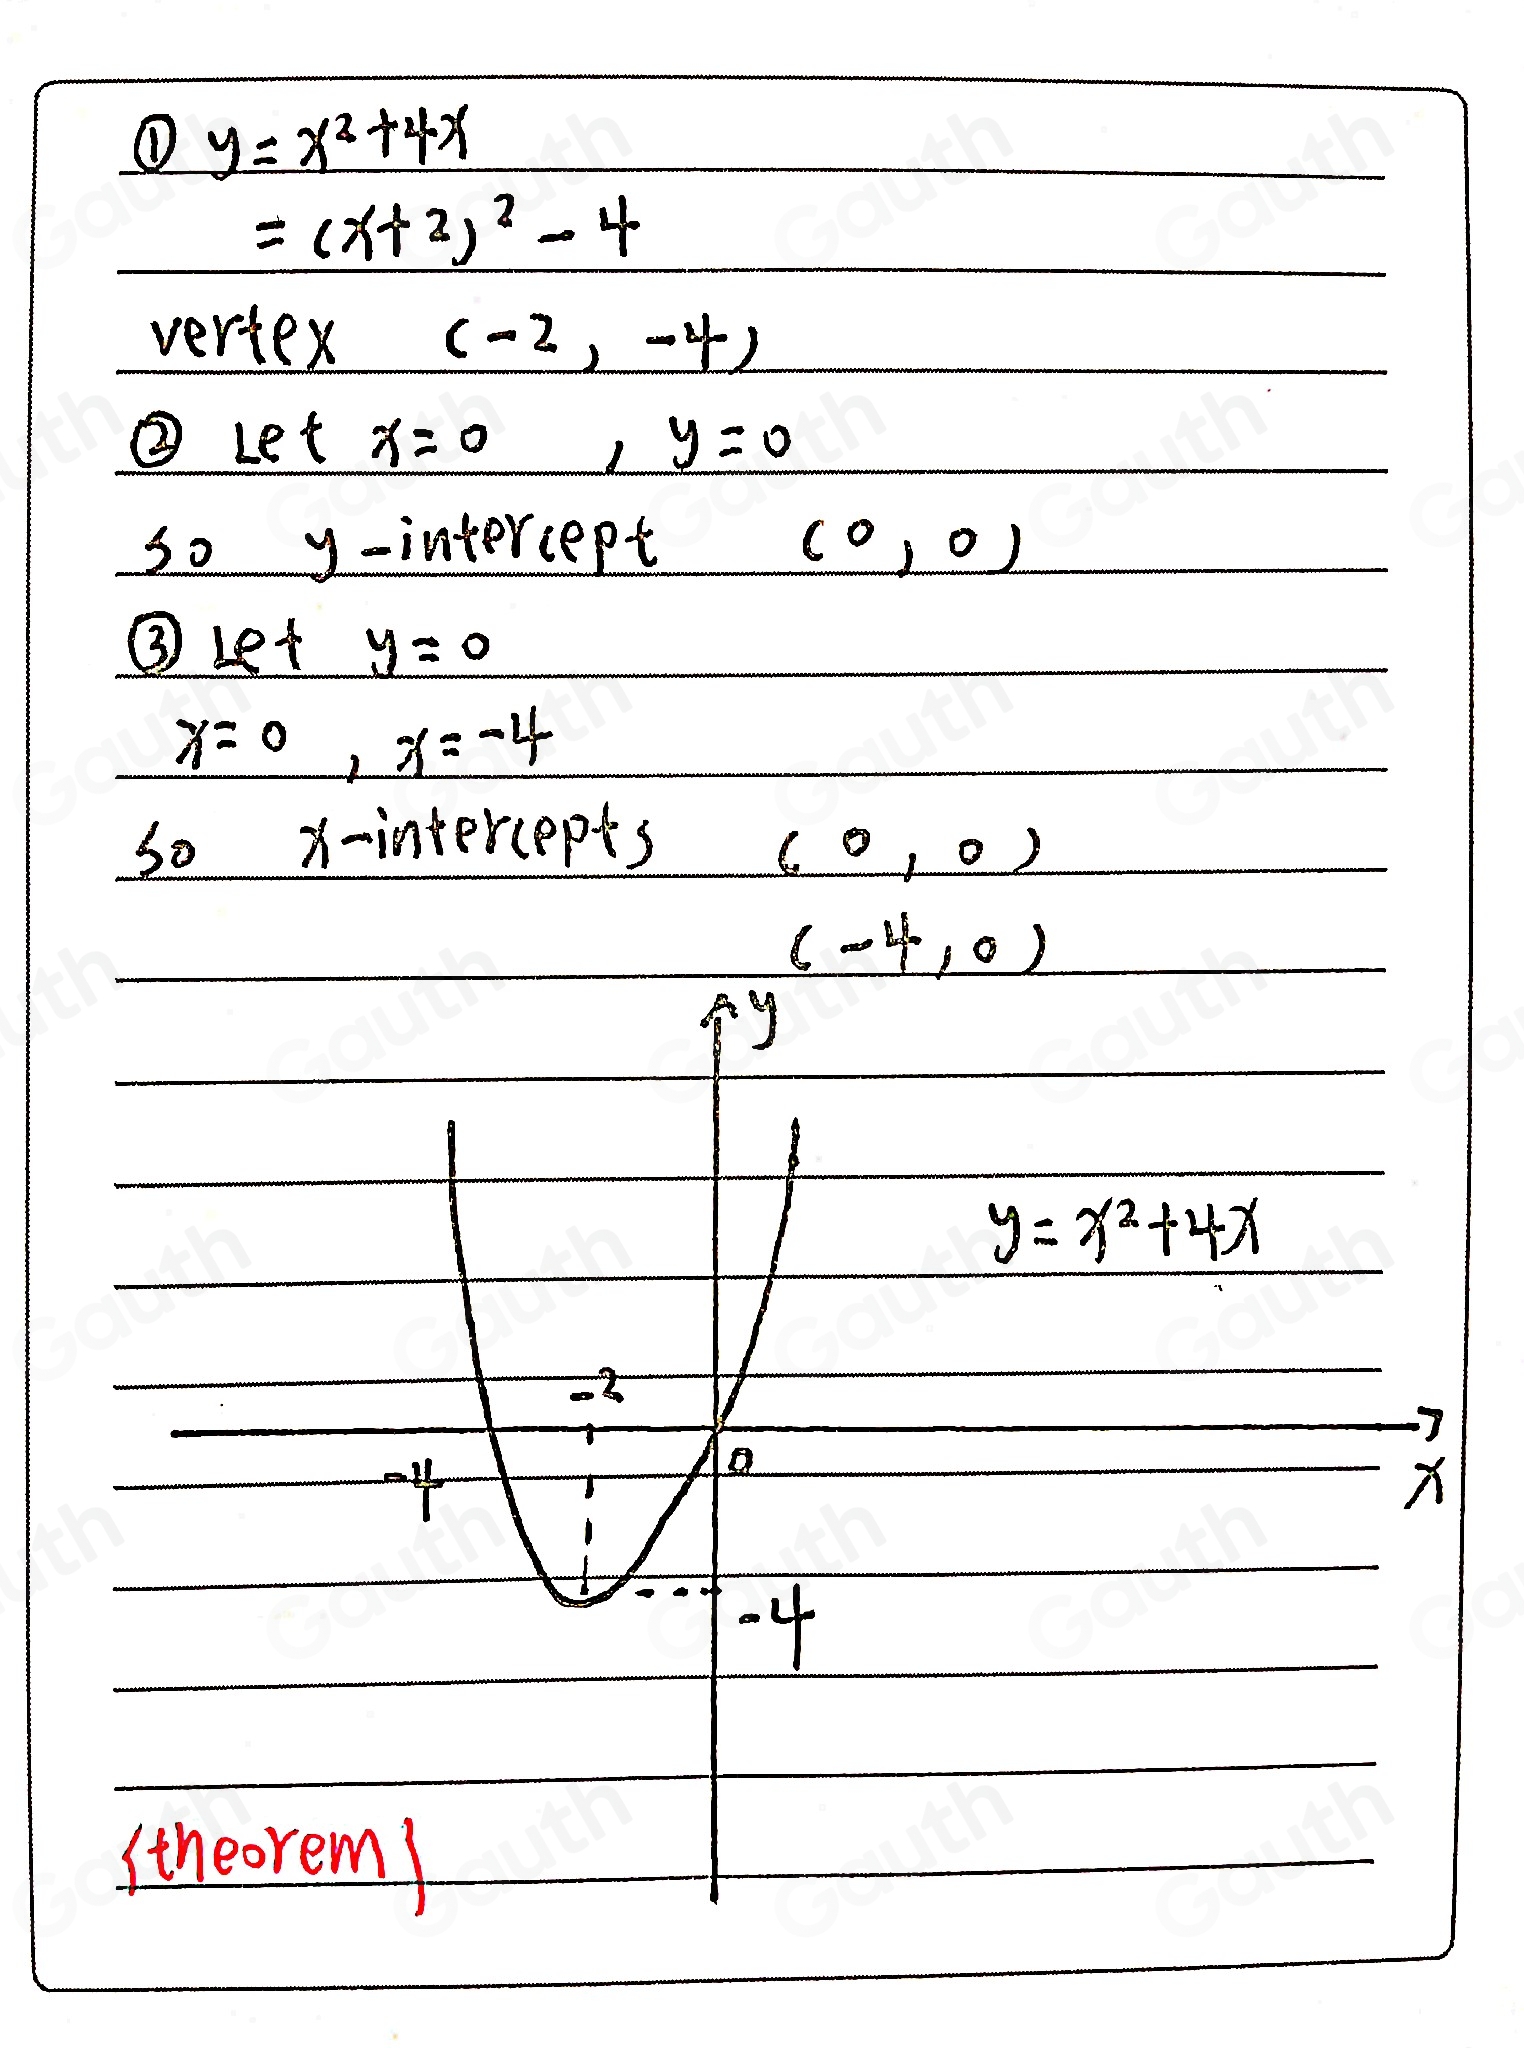 ① y = x² + 4x
= (x + 2)² - 4
vertex (-2, -4)
② Let x = 0 , y = 0
so y-intercept (0, 0)
③ Let y = 0
x = 0 , x = -4
so x-intercepts (0, 0)
(-4, 0)
y
y = x² + 4x
-2
-4
0
x
-4
{theorem}
Gauth